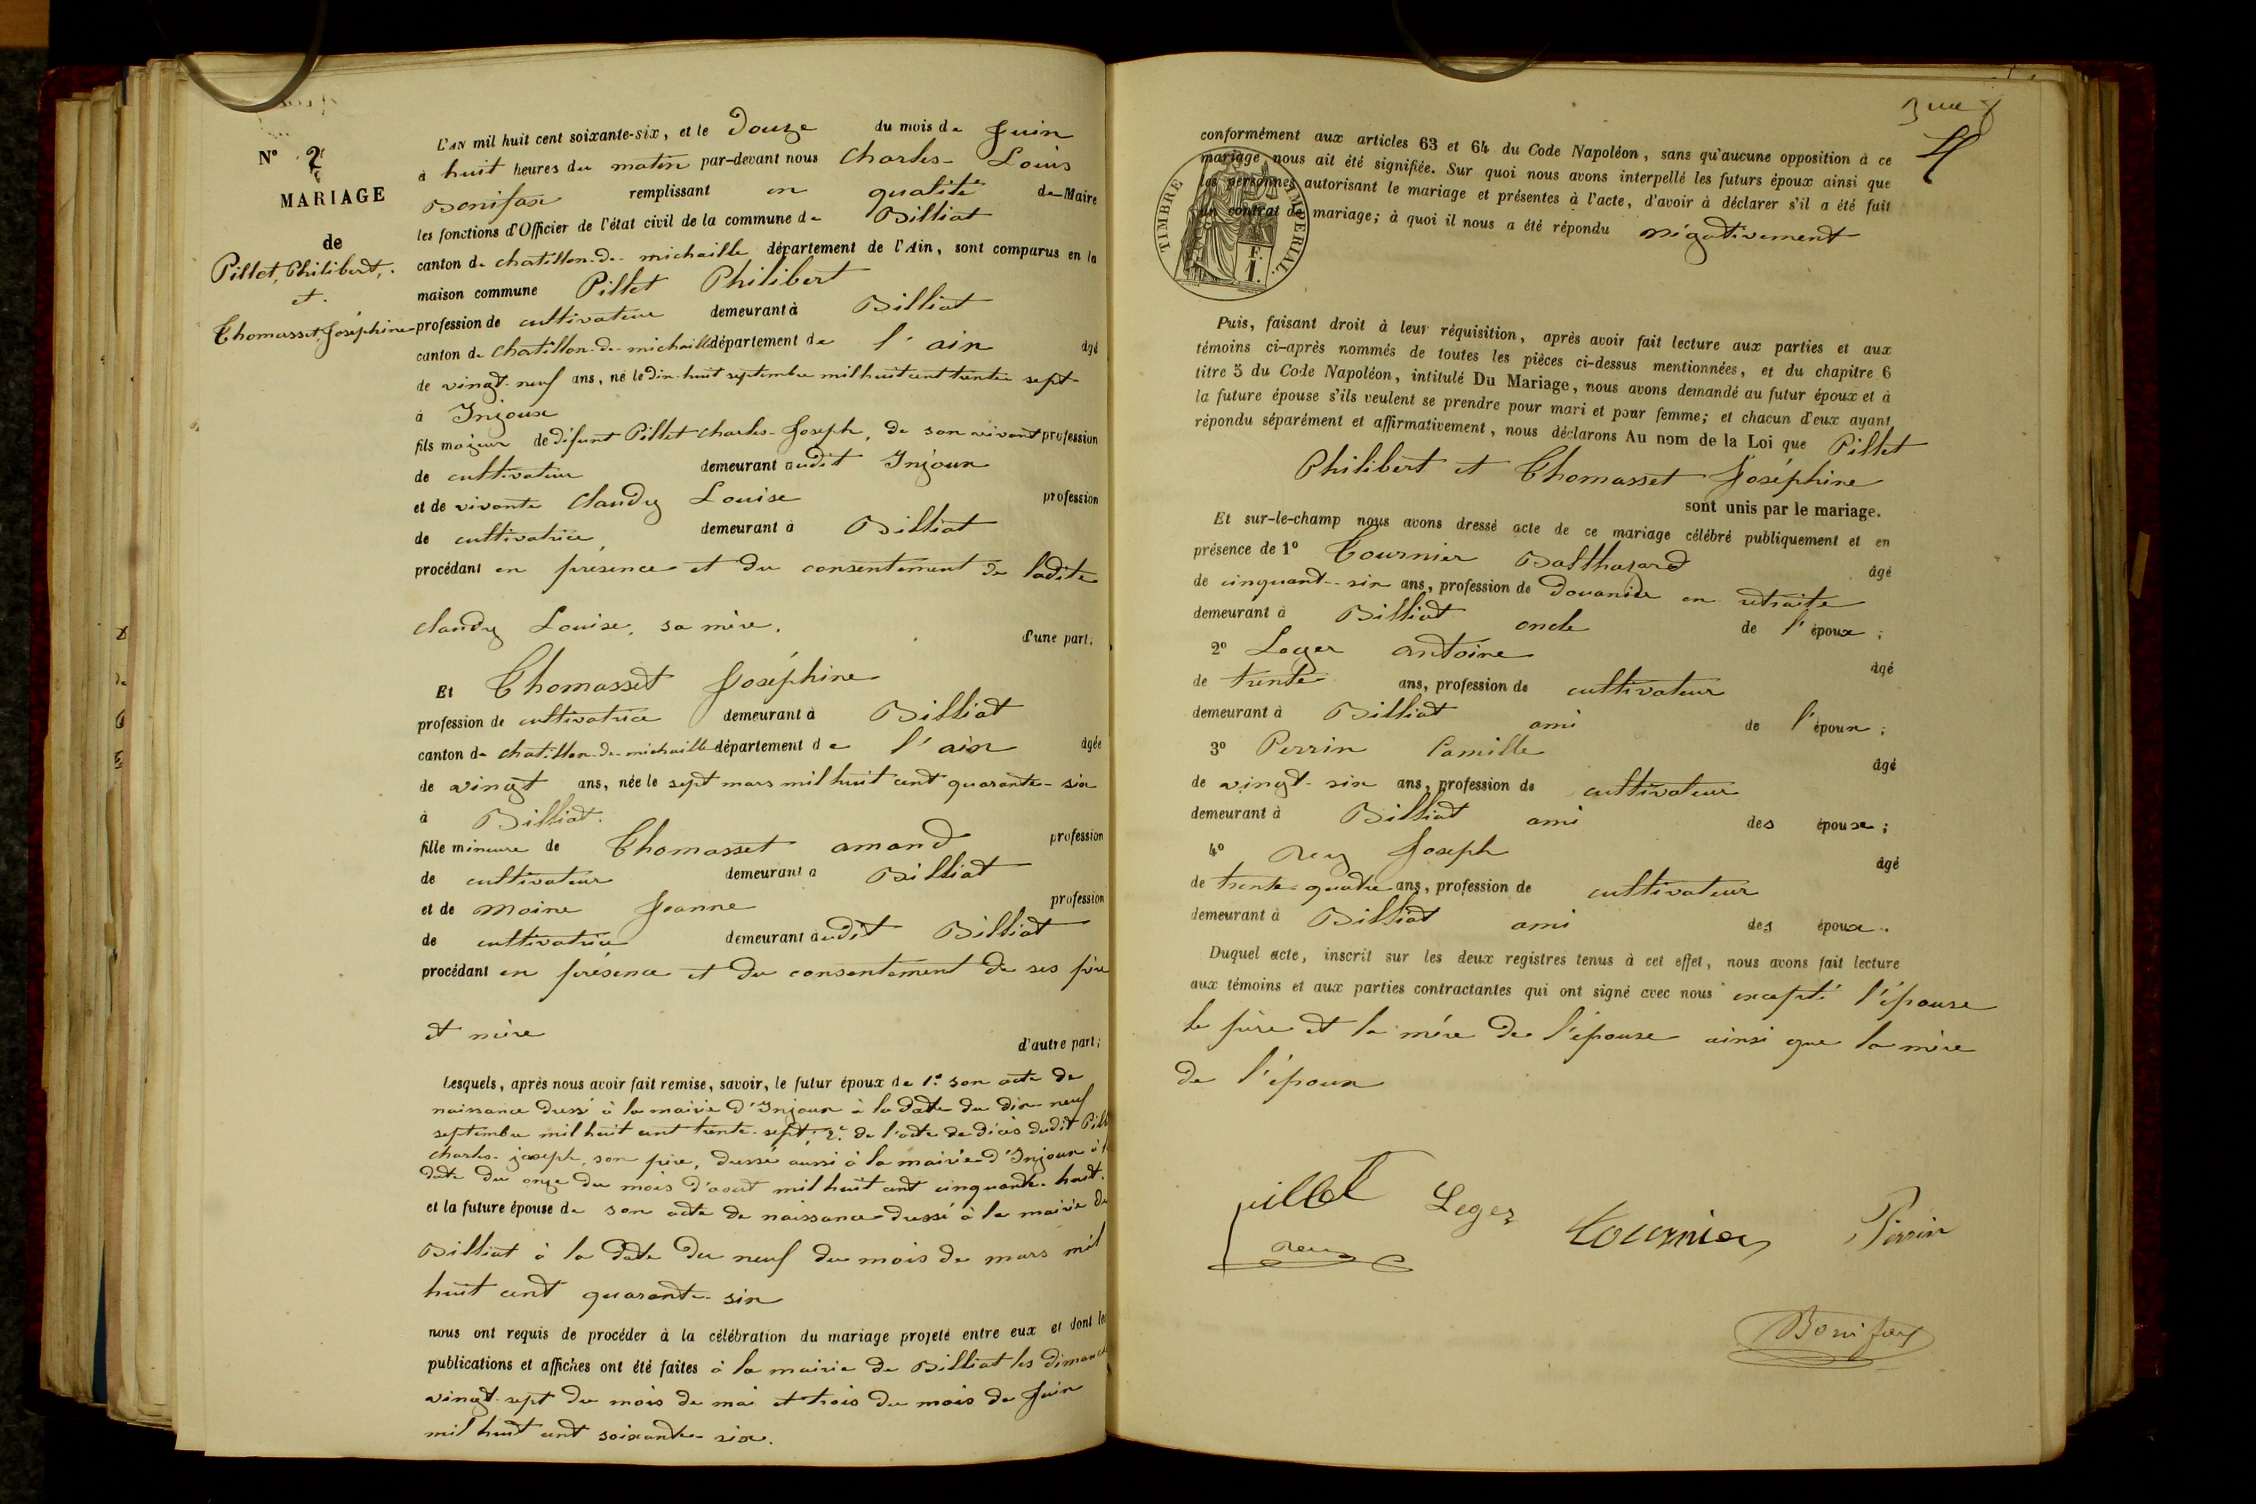 N° 2
MARIAGE
de
Pillet, Philibert,
et
Thomasset Joséphine
L'AN mil huit cent soixante-six, et le Douze du mois de Juin
à huit heures du matin par-devant nous Charles-Louis
Bonifax remplissant en qualité de Maire
les fonctions d'Officier de l'état civil de la commune de Billiat
canton de chatillon-de-michaille département de l'Ain, sont comparus en la
maison commune Pillet Philibert
profession de cultivateur demeurant à Billiat
canton de chatillon-de-michaille département de l'ain âgé
de vingt-neuf ans, né le dix-huit septembre mil huit cent trente sept
à Injoux
fils majeur de défunt Pillet Charles-Joseph, de son vivant profession
de cultivateur demeurant audit Injoux
et de vivante Claudey Louise profession
de cultivatrice, demeurant à Billiat
procédant en présence et du consentement de ladite
Claudey Louise, sa mère, d'une part;
Et Thomasset Joséphine
profession de cultivatrice demeurant à Billiat
canton de chatillon-de-michaille département de l'ain âgée
de vingt ans, née le sept mars mil huit cent quarante-six
à Billiat.
fille mineure de Thomasset amand profession
de cultivateur demeurant à Billiat
et de Moine Jeanne profession
de cultivatrice demeurant audit Billiat
procédant en présence et du consentement de ses père
et mère d'autre part;
Lesquels, après nous avoir fait remise, savoir, le futur époux de 1° son acte de
naissance dressé à la mairie d'Injoux à la date du dix-neuf
septembre mil huit cent trente-sept, 2° de l'acte de décès dudit Pill
Charles-joseph, son père, dressé aussi à la mairie d'Injoux à
date du onze du mois d'aout mil huit cent cinquante-huit.
et la future épouse de son acte de naissance dressé à la mairie de
Billiat à la date du neuf du mois de mars mil
huit cent quarante-six
nous ont requis de procéder à la célébration du mariage projeté entre eux et dont les
publications et affiches ont été faites à la mairie de Billiat les dimanc
vingt-sept du mois de mai et trois du mois de Juin
mil huit cent soixante-six.
conformément aux articles 63 et 64 du Code Napoléon, sans qu'aucune opposition à ce
mariage nous ait été signifiée. Sur quoi nous avons interpellé les futurs époux ainsi que
les personnes autorisant le mariage et présentes à l'acte, d'avoir à déclarer s'il a été fait
un contrat de mariage; à quoi il nous a été répondu négativement
TIMBRE IMPÉRIAL
F.
1.
Puis, faisant droit à leur réquisition, après avoir fait lecture aux parties et aux
témoins ci-après nommés de toutes les pièces ci-dessus mentionnées, et du chapitre 6
titre 5 du Code Napoléon, intitulé Du Mariage, nous avons demandé au futur époux et à
la future épouse s'ils veulent se prendre pour mari et pour femme; et chacun d'eux ayant
répondu séparément et affirmativement, nous déclarons Au nom de la Loi que Pillet
Philibert et Thomasset Joséphine
sont unis par le mariage.
Et sur-le-champ nous avons dressé acte de ce mariage célébré publiquement et en
présence de 1° Tournier Balthazard âgé
de cinquante-six ans, profession de Douanier en retraite
demeurant à Billiat oncle de l'époux;
2° Leger antoine âgé
de trente ans, profession de cultivateur
demeurant à Billiat ami de l'époux;
3° Perrin Camille âgé
de vingt-six ans, profession de cultivateur
demeurant à Billiat ami des époux;
4° Rey Joseph âgé
de trente-quatre ans, profession de cultivateur
demeurant à Billiat ami des époux.
Duquel acte, inscrit sur les deux registres tenus à cet effet, nous avons fait lecture
aux témoins et aux parties contractantes qui ont signé avec nous excepté l'épouse
le père et la mère de l'épouse ainsi que la mère
de l'époux
pillet Leger tournier Perrin
Rey
Bonifax